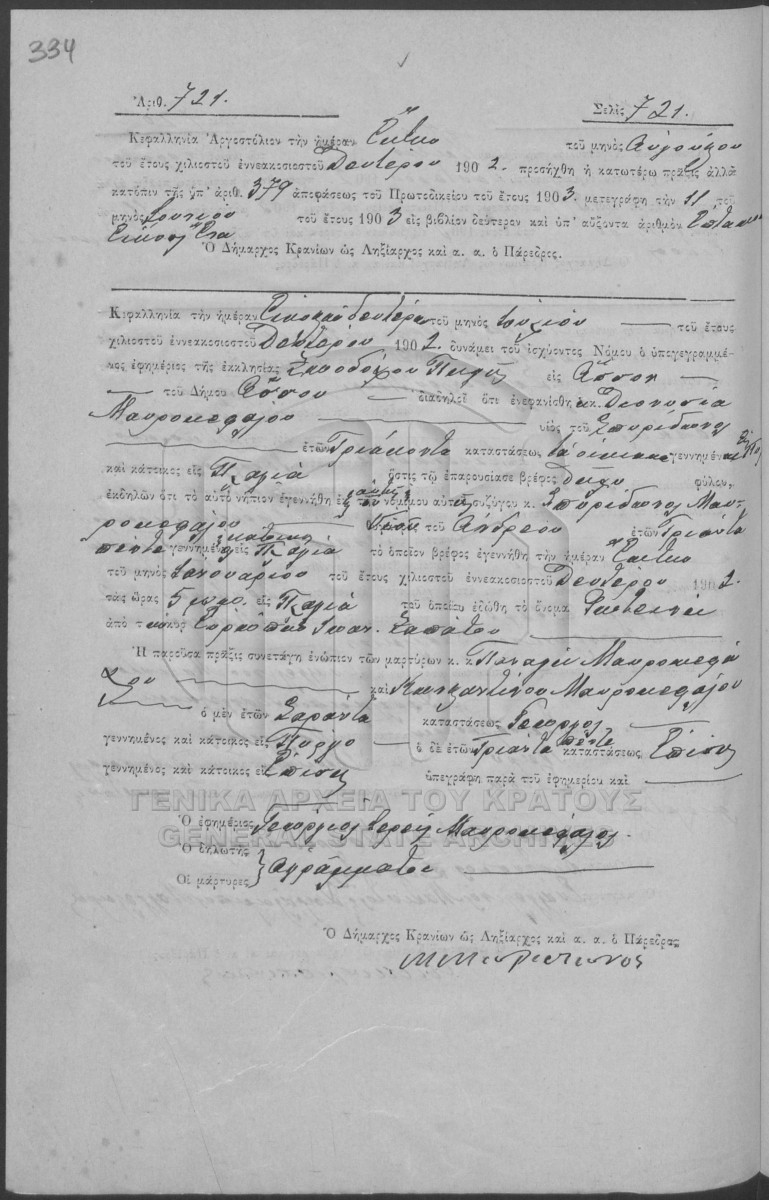 334
Ἀριθ. 721.
Σελὶς 721.
Κεφαλληνία Ἀργοστόλιον τὴν ἡμέραν Ἕκτην τοῦ μηνὸς Αὐγούστου
τοῦ ἔτους χιλιοστοῦ ἐννεακοσιοστοῦ Δευτέρου 1902. προσήχθη ἡ κατωτέρω πρᾶξις ἀλλὰ
κατόπιν τῆς ὑπ' ἀριθ. 379 ἀποφάσεως τοῦ Πρωτοδικείου τοῦ ἔτους 1903. μετεγράφη τὴν 11 τοῦ
μηνὸς Ἰουνίου τοῦ ἔτους 1903 εἰς βιβλίον δεύτερον καὶ ὑπ' αὔξοντα ἀριθμὸν
Εἴκοσι Ἕνα
Ὁ Δήμαρχος Κρανίων ὡς Ληξίαρχος καὶ α. α. ὁ Πάρεδρος.
Κεφαλληνία τὴν ἡμέραν Εἰκοστὴν δευτέραν τοῦ μηνὸς Ἰουλίου τοῦ ἔτους
χιλιοστοῦ ἐννεακοσιοστοῦ Δευτέρου 1902 δυνάμει τοῦ ἰσχύοντος Νόμου ὁ ὑπογεγραμμέ-
νος ἐφημέριος τῆς ἐκκλησίας Ζωοδόχου Πηγῆς εἰς Ἄσσον
τοῦ Δήμου Ἄσσου διαδηλοῖ ὅτι ἐνεφανίσθη ὁ κ. Διονυσία
Μαυροκεφάλου υἱὸς τοῦ Σπυρίδωνος
ἐτῶν Τριάκοντα καταστάσεως γεννημένος
καὶ κάτοικος εἰς ὅστις τῷ ἐπαρουσίασε βρέφος φύλου,
ἐκδηλῶν ὅτι τὸ αὐτὸ νήπιον ἐγεννήθη ἐκ τῆς νομίμου αὐτοῦ συζύγου κ. Σπυρίδωνος Μαυ-
ροκεφάλου τοῦ Ἀνδρέου ἐτῶν Τριάντα
πέντε γεννημένης εἰς τὸ ὁποῖον βρέφος ἐγεννήθη τὴν ἡμέραν Ἕκτην
τοῦ μηνὸς Ἰανουαρίου τοῦ ἔτους χιλιοστοῦ ἐννεακοσιοστοῦ Δευτέρου 1902.
τὰς ὥρας 5 εἰς τοῦ ὁποίου ἐδώθη τὸ ὄνομα Φωτεινή
ἀπὸ τ
Ἡ παροῦσα πρᾶξις συνετάγη ἐνώπιον τῶν μαρτύρων κ. κ. Παναγῆ Μαυροκεφά
λου καὶ Κωνσταντίνου Μαυροκεφάλου
ὁ μὲν ἐτῶν Σαράντα καταστάσεως Γεωργός
γεννημένος καὶ κάτοικος εἰς ὁ δὲ ἐτῶν Τριάντα πέντε καταστάσεως Ἐπίσης
γεννημένος καὶ κάτοικος εἰς Ἐπίσης ὑπεγράφη παρὰ τοῦ ἐφημερίου καὶ
ΓΕΝΙΚΑ ΑΡΧΕΙΑ ΤΟΥ ΚΡΑΤΟΥΣ
GENERAL STATE ARCHIVES
Ὁ ἐφημέριος Γεώργιος Ἱερεὺς Μαυροκέφαλος.
Ὁ δηλωτὴς
Οἱ μάρτυρες } Ἀγράμματοι
Ὁ Δήμαρχος Κρανίων ὡς Ληξίαρχος καὶ α. α. ὁ Πάρεδρος